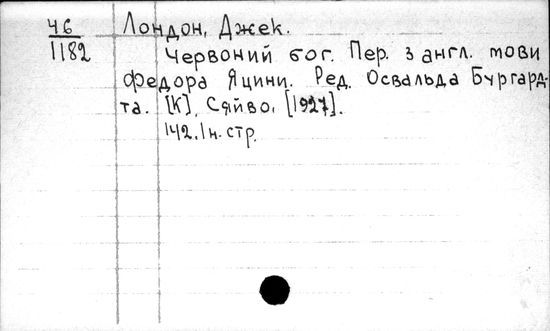 46 Лондон, Джек.
1182
Червоний бог. Пер. з англ. мови
Федора Яцини. Ред. Освальда Бургард-
та. [К], Сяйво, [1927].
142, 1 н. стр.